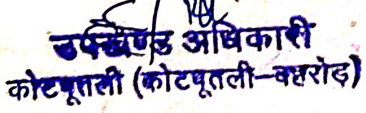 उपखण्ड अधिकारी
कोटपूतली (कोटपूतली-बहरोड़)